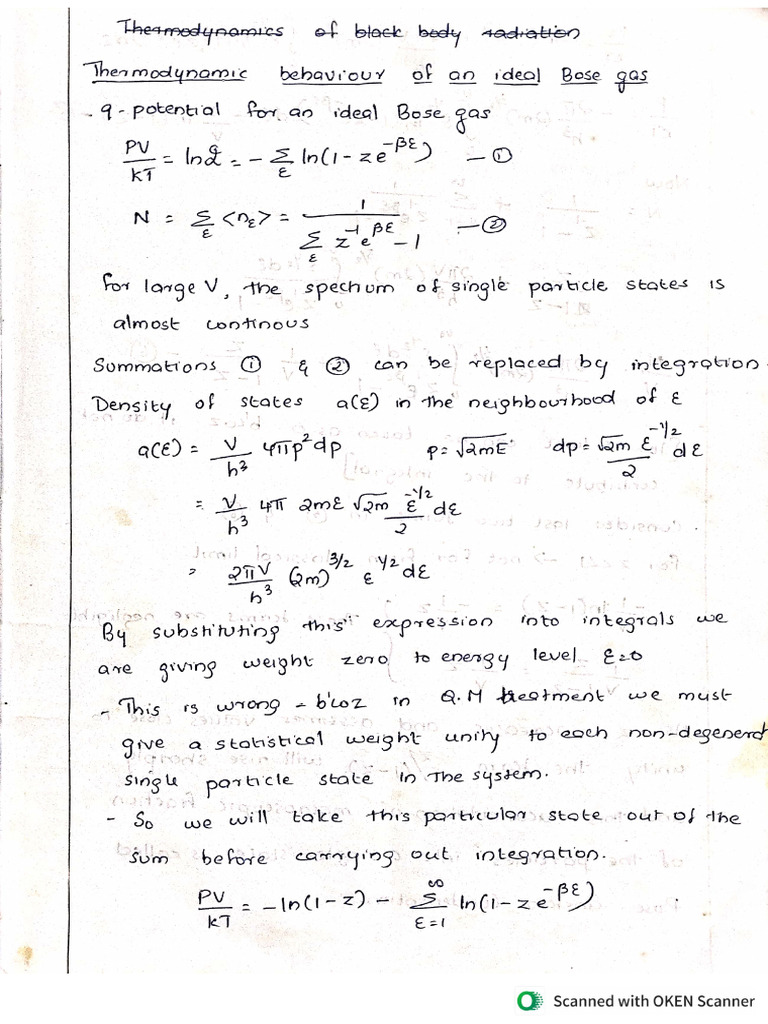 Thermodynamics of black body radiation
Thermodynamic behaviour of an ideal Bose gas
- q-potential for an ideal Bose gas
PV/kT = ln𝒬 = - Σ_ε ln(1 - ze^{-βε}) — ①
N = Σ_ε <n_ε> = 1/(Σ_ε z^{-1} e^{βε} - 1) — ②
For large V, the spectrum of single particle states is
almost continous
Summations ① & ② can be replaced by integration.
Density of states a(ε) in the neighbourhood of ε
a(ε) = V/h³ 4πp²dp p = √2mE dp = √2m ε^{-1/2}/2 dε
= V/h³ 4π 2mε √2m ε^{-1/2}/2 dε
= 2πV/h³ (2m)^{3/2} ε^{1/2} dε
By substituting this expression into integrals we
are giving weight zero to energy level ε=0
- This is wrong - b'coz in Q.M treatment we must
give a statistical weight unity to each non-degenerat
single particle state in the system.
- So we will take this particular state out of the
sum before carrying out integration.
PV/kT = -ln(1-z) - Σ_{ε=1}^{∞} ln(1 - ze^{-βε})
Scanned with OKEN Scanner